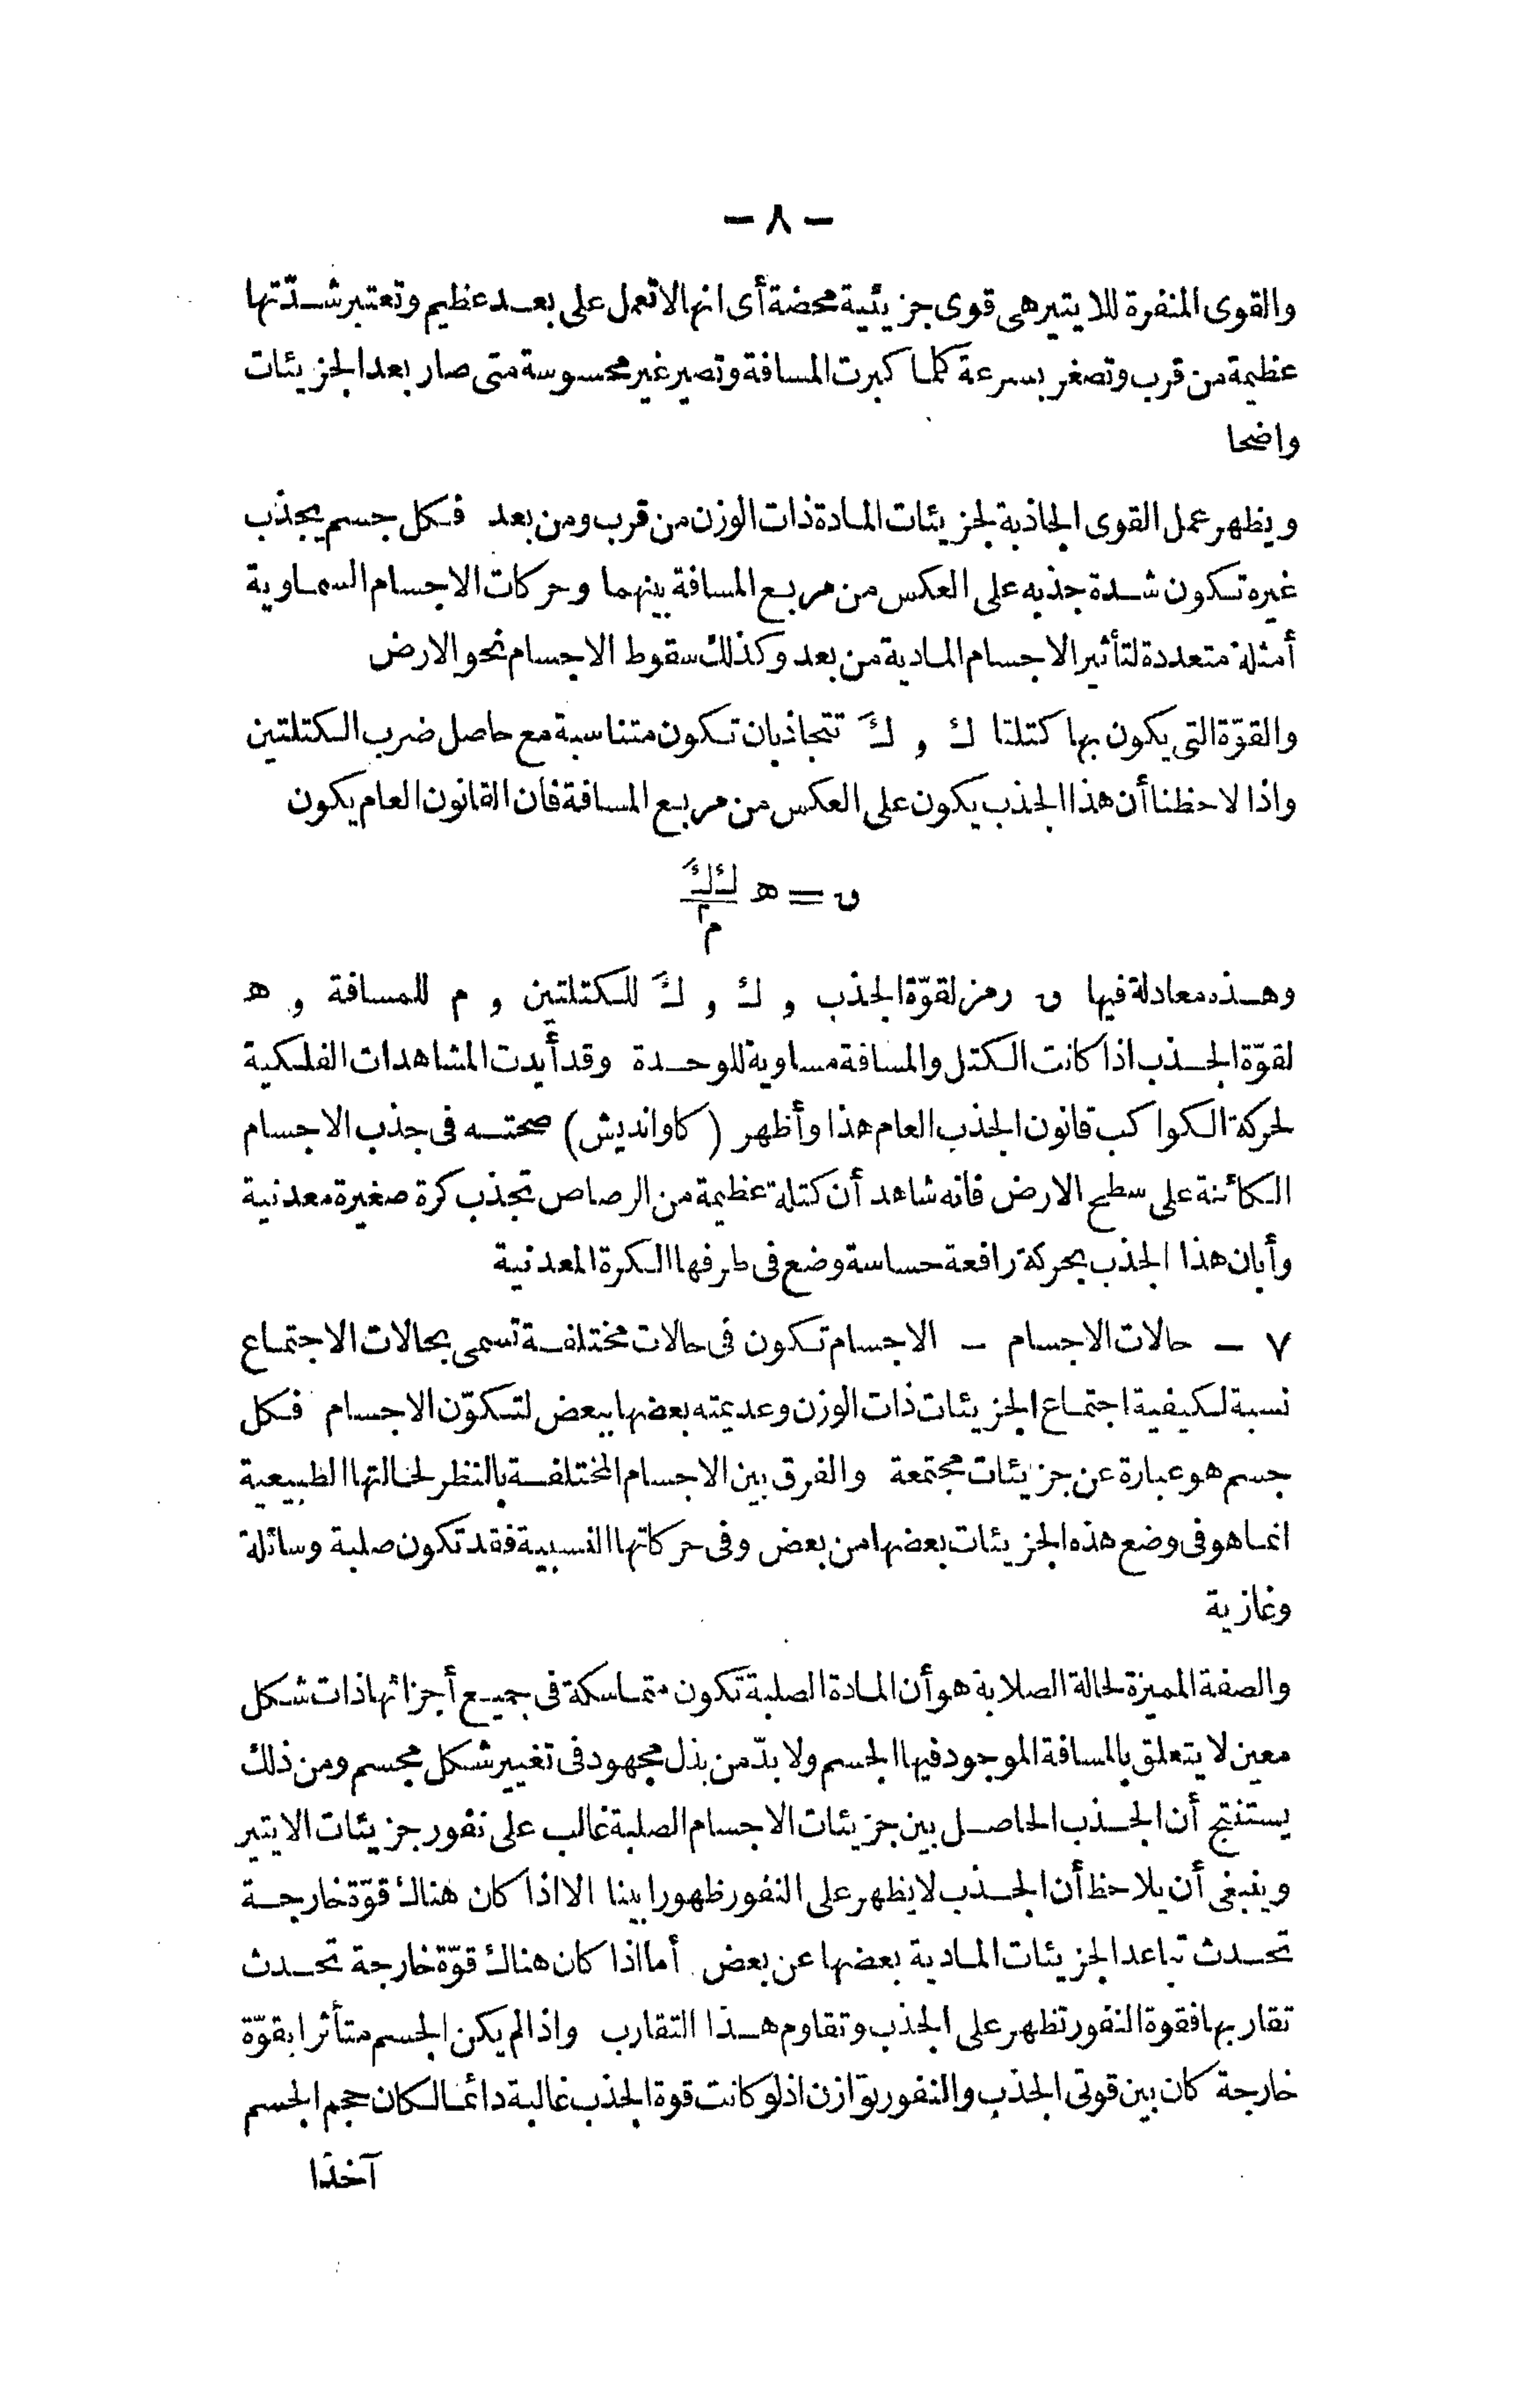 — ٨ —
والقوى المنفرة للايتير هى قوى جزيئية محضة أى انها لا تعمل على بعد عظيم وتعتبر شدّتها
عظيمة من قرب وتصغر بسرعة كلما كبرت المسافة وتصير غير محسوسة متى صار بعد الجزيئات
واضحا
ويظهر عمل القوى الجاذبة لجزيئات المادة ذات الوزن من قرب ومن بعد فكل جسم يجذب
غيره تكون شدة جذبه على العكس من مربع المسافة بينهما وحركات الاجسام السماوية
أمثلة متعددة لتأثير الاجسام المادية من بعد وكذلك سقوط الاجسام نحو الارض
والقوّة التى يكون بها كتلتا ك و كَ تتجاذبان تكون متناسبة مع حاصل ضرب الكتلتين
واذا لاحظنا أن هذا الجذب يكون على العكس من مربع المسافة فان القانون العام يكون
ق = ه ك كَ / م٢
وهذه معادلة فيها ق رمز لقوّة الجذب و ك و كَ للكتلتين و م للمسافة و ه
لقوّة الجذب اذا كانت الكتل والمسافة مساوية للوحدة وقد أيدت المشاهدات الفلكية
لحركة الكواكب قانون الجذب العام هذا وأظهر (كاوانديش) صحته فى جذب الاجسام
الكائنة على سطح الارض فانه شاهد أن كتلة عظيمة من الرصاص تجذب كرة صغيرة معدنية
وأبان هذا الجذب بحركة رافعة حساسة وضع فى طرفها الكرة المعدنية
٧ — حالات الاجسام — الاجسام تكون فى حالات مختلفة تسمى بحالات الاجتماع
نسبة لكيفية اجتماع الجزيئات ذات الوزن وعديمته بعضها ببعض لتكوّن الاجسام فكل
جسم هو عبارة عن جزيئات مجتمعة والفرق بين الاجسام المختلفة بالنظر لحالتها الطبيعية
انما هو فى وضع هذه الجزيئات بعضها من بعض وفى حركاتها النسبية فقد تكون صلبة وسائلة
وغازية
والصفة المميزة لحالة الصلابة هو أن المادة الصلبة تكون متماسكة فى جميع أجزائها ذات شكل
معين لا يتعلق بالمسافة الموجود فيها الجسم ولا بدّ من بذل مجهود فى تغيير شكل مجسم ومن ذلك
يستنتج أن الجذب الحاصل بين جزيئات الاجسام الصلبة غالب على نفور جزيئات الايتير
وينبغى أن يلاحظ أن الجذب لا يظهر على النفور ظهورا بينا الا اذا كان هناك قوّة خارجة
تحدث تباعد الجزيئات المادية بعضها عن بعض أما اذا كان هناك قوّة خارجة تحدث
تقاربها فقوة النفور تظهر على الجذب وتقاوم هذا التقارب واذا لم يكن الجسم متأثرا بقوّة
خارجة كان بين قوتى الجذب والنفور توازن اذ لو كانت قوة الجذب غالبة دائما لكان حجم الجسم
آخذا